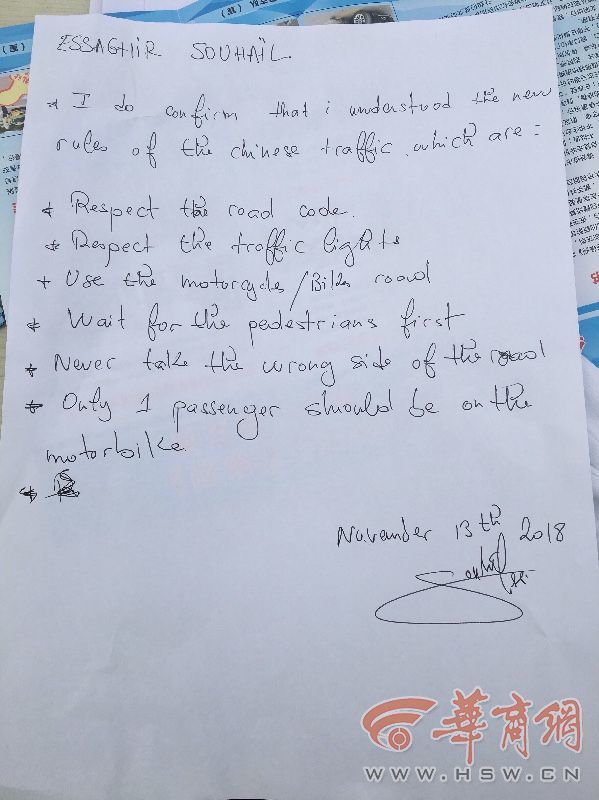 ESSAGHIR SOUHAÏL
* I do confirm that i understood the new
rules of the chinese traffic. which are :
* Respect the road code.
* Respect the traffic lights
+ Use the motorcycles/Bikes road
* Wait for the pedestrians first
* Never take the wrong side of the road
* Only 1 passenger should be on the
motorbike
*
November 13th 2018
華商網
WWW.HSW.CN